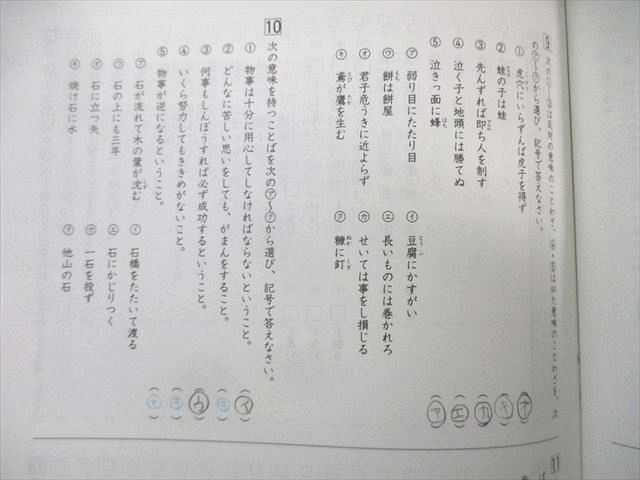 9 次の①〜③は反対の意味のことわざ、④・⑤は似た意味のことわざを、次
の㋐〜㋗から選び、記号で答えなさい。
① 虎穴にいらずんば虎子を得ず (オ)
② 蛙の子は蛙 (キ)
③ 先んずれば即ち人を制す (カ)
④ 泣く子と地頭には勝てぬ (エ)
⑤ 泣きっ面に蜂 (ア)
㋐ 弱り目にたたり目 ㋑ 豆腐にかすがい
㋒ 餅は餅屋 ㋓ 長いものには巻かれろ
㋔ 君子危うきに近よらず ㋕ せいては事をし損じる
㋖ 鳶が鷹を生む ㋗ 糠に釘
10 次の意味を持つことばを次の㋐〜㋗から選び、記号で答えなさい。
① 物事は十分に用心してしなければならないということ。 (イ)
② どんなに苦しい思いをしても、がまんをすること。
③ 何事もしんぼうすれば必ず成功するということ。 (ウ)
④ いくら努力してもききめがないこと。 (キ)
⑤ 物事が逆になるということ。 (ア)
㋐ 石が流れて木の葉が沈む ㋑ 石橋をたたいて渡る
㋒ 石の上にも三年 ㋓ 石にかじりつく
㋔ 石に立つ矢 ㋕ 一石を投ず
㋖ 焼け石に水 ㋗ 他山の石
11